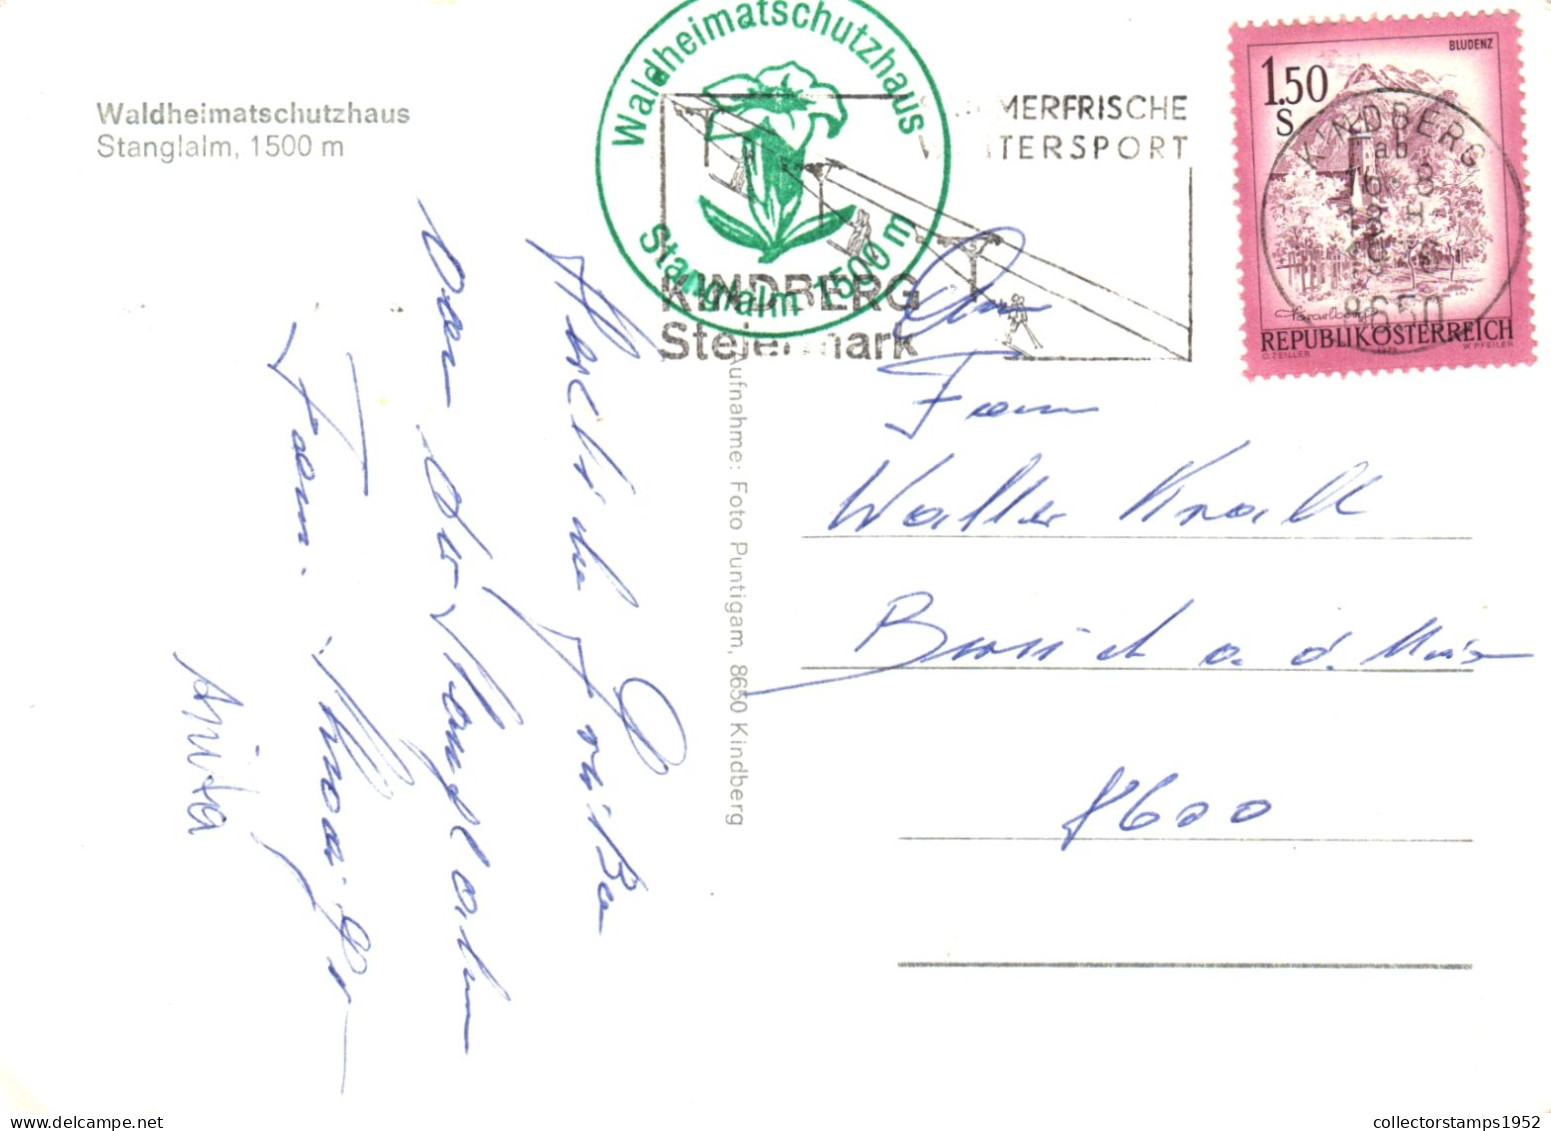 Waldheimatschutzhaus
Stanglalm, 1500 m
Waldheimatschutzhaus
Stanglalm 1500 m
MERFRISCHE
TERSPORT
KINDBERG
Steiermark
1.50
S
BLUDENZ
KINDBERG
ab
8650
Vorarlberg
REPUBLIK ÖSTERREICH
O. ZEILER
W. PFEILER
Aufnahme: Foto Puntigam, 8650 Kindberg
Herzliche Grüße
von der Stanglalm
Fam.
Anita
An
Fam
Walter Krall
Bruck a. d. Mur
8600
collectorstamps1952